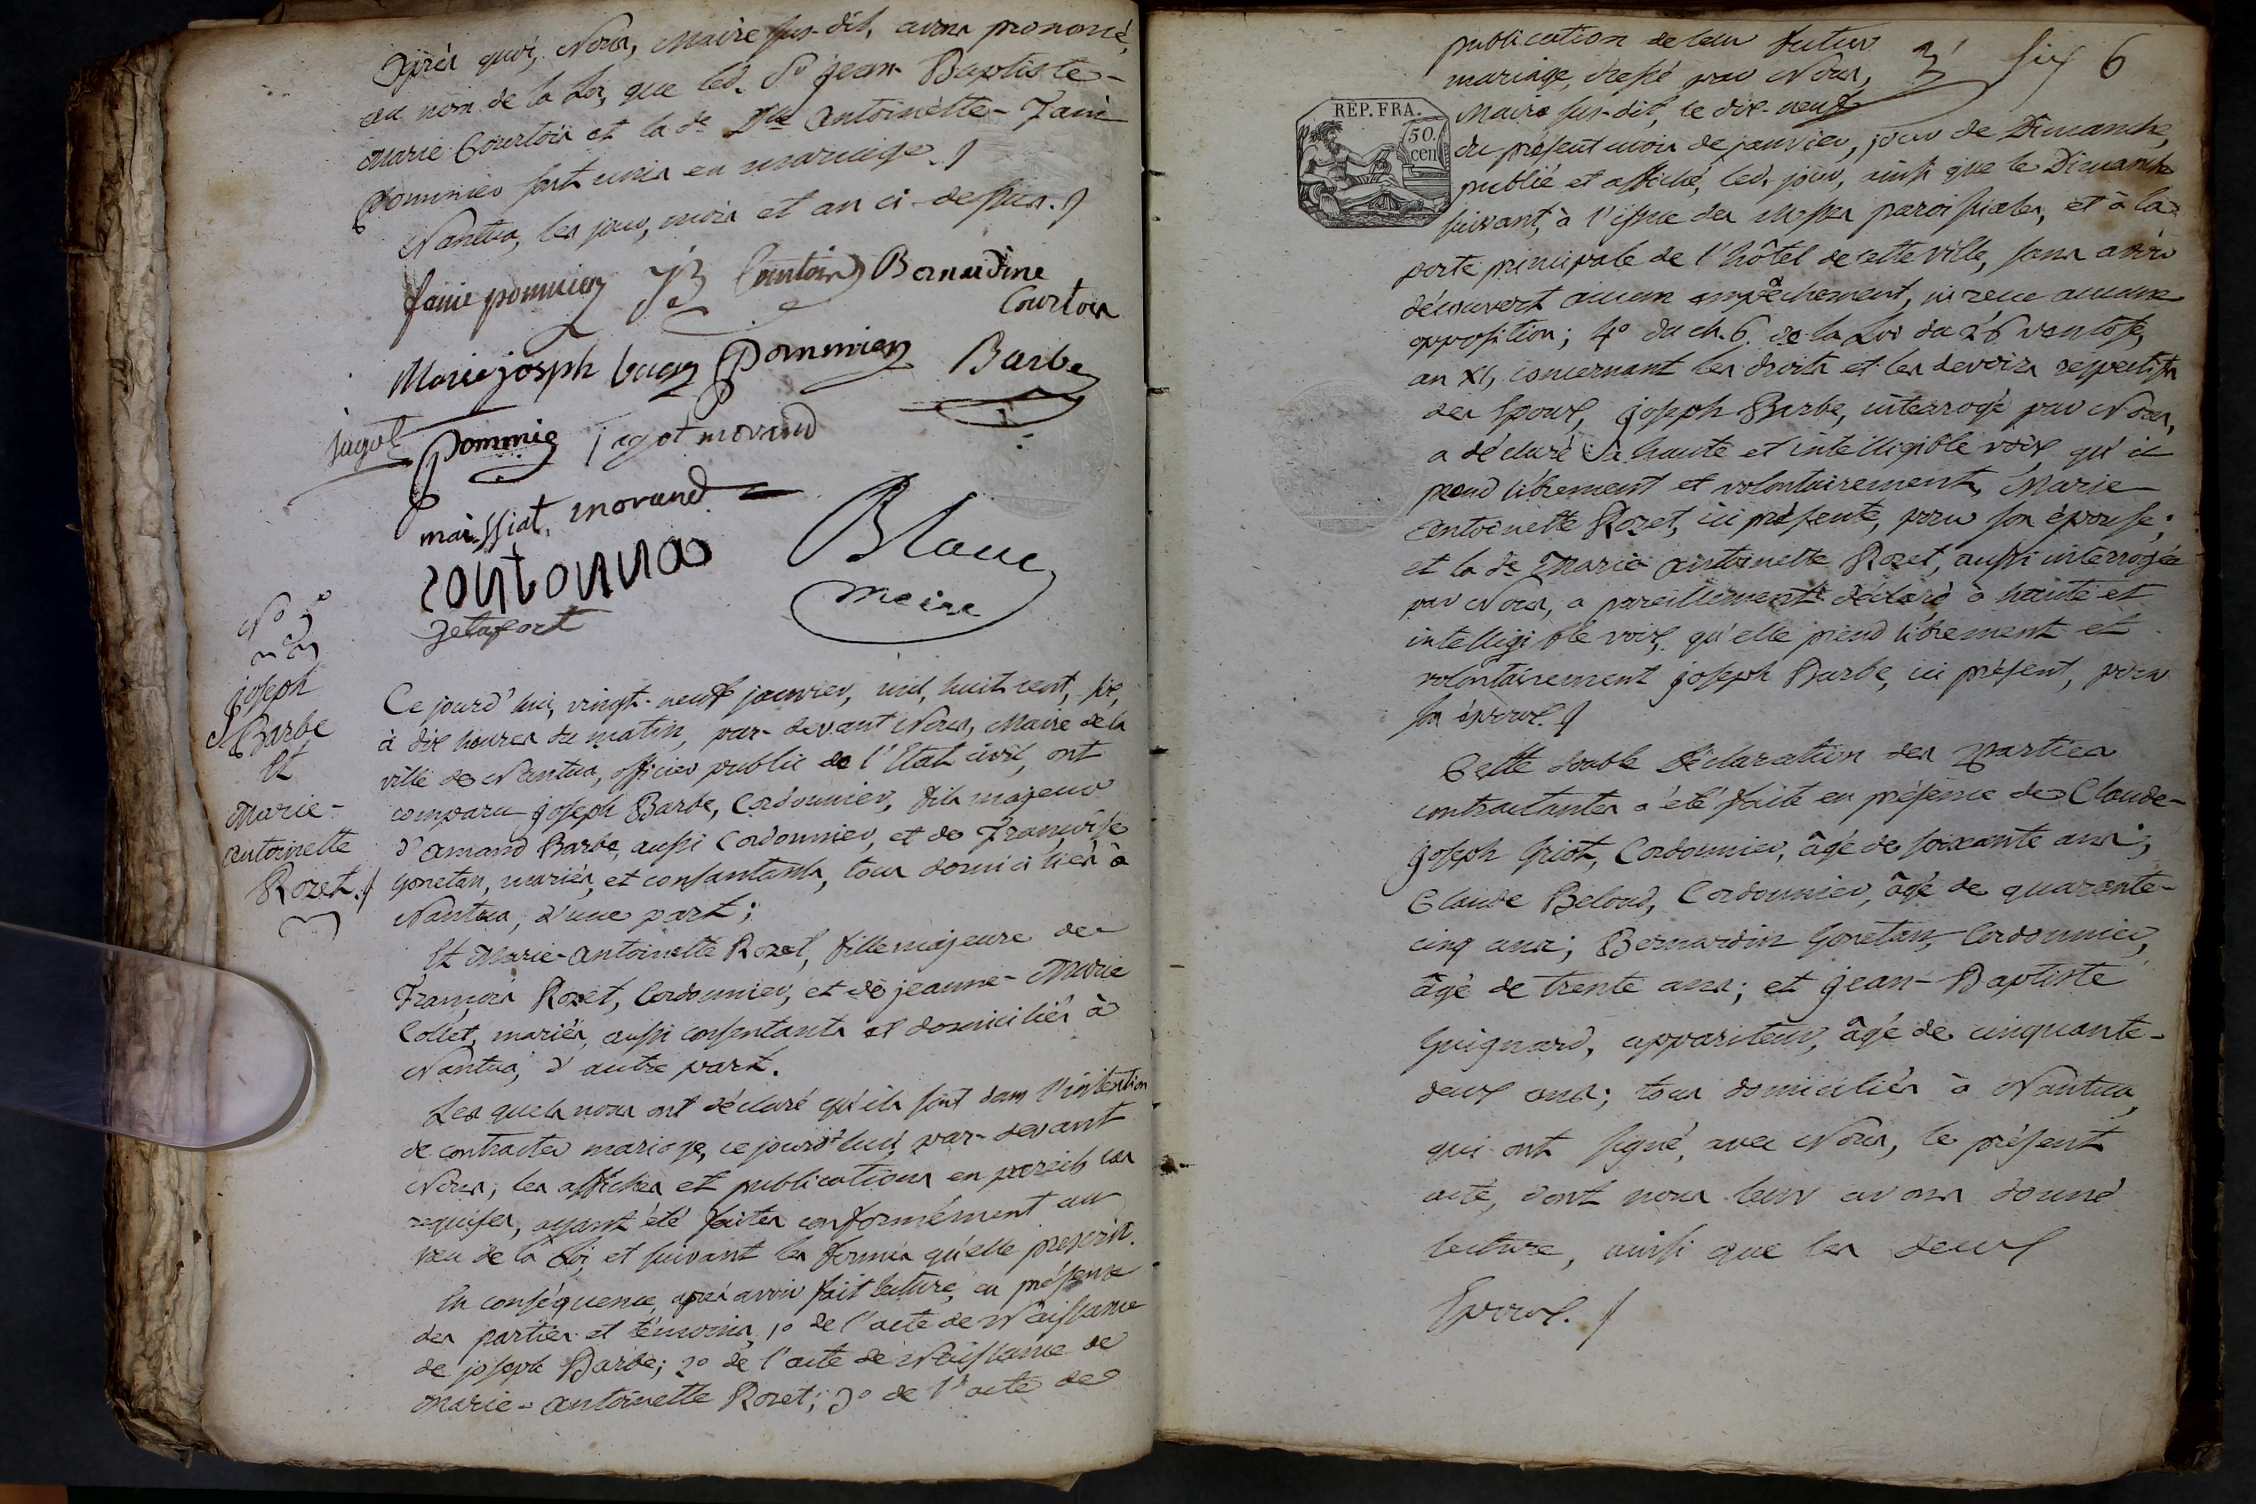 Après quoi, Nous, Maire sus-dit, avons prononcé,
au nom de la Loi, que led. Sr. jean-Baptiste-
Marie Courtois et la de. Dlle. Antoinette-Fanie
Pommier sont unis en mariage.
Nantua, les jour, mois et an ci-dessus.
fanie pommier JB Courtois Bernardine
Courtois
Marie joseph Pommier Barbe
jagot Pommier jagot morand
maissiat, morand
Blanc
Maire
N° 5e
joseph
Barbe
Et
Marie-
antoinette
Rozet.
Ce jourd'hui, vingt-neuf janvier, mil, huit cent, six,
à dix heures du matin, par-devant Nous, Maire de la
ville de Nantua, officier public de l'Etat civil, ont
comparu joseph Barbe, Cordonnier, fils majeur
d'amand Barbe, aussi Cordonnier, et de Françoise
Gonetan, mariés, et consantants, tous domiciliés à
Nantua, d'une part;
Et Marie-antoinette Rozet, fille majeure de
François Rozet, Cordonnier, et de jeanne-Marie
Collet, mariés, aussi consentants et domiciliés à
Nantua, d'autre part.
Les quels nous ont déclaré qu'ils sont dans l'intention
de contracter mariage, ce jourd'hui, par-devant
Nous; les affiches et publications en pareils cas
requises, ayant été faites conformément au
vœu de la Loi, et suivant les formes qu'elle prescrit.
En conséquence, après avoir fait lecture, en présence
des parties et témoins, 1° de l'acte de Naissance
de joseph Barbe; 2° de l'acte de Naissance de
Marie-antoinette Rozet; 3° de l'acte de
six 6
REP. FRA.
50
cen
publication de leur futur
mariage, dressé par Nous,
Maire sus-dit, le dix-neuf
du présent mois de janvier, jour de Dimanche,
publié et affiché, led. jour, ainsi que le Dimanche
suivant, à l'issue des Messes paroissiales, et à la
porte principale de l'hôtel de cette ville, sans avoir
découvert aucun empêchement, ni reçu aucune
opposition; 4° du ch. 6. de la Loi du 26 ventose,
an XI, concernant les droits et les devoirs respectifs
des Epoux, joseph Barbe, interrogé par Nous,
a déclaré à haute et intelligible voix, qu'il
prend librement et volontairement, Marie
antoinette Rozet, ici présente, pour son épouse;
et la de. Marie antoinette Rozet, aussi interrogée
par Nous, a pareillement déclaré à haute et
intelligible voix, qu'elle prend librement et
volontairement joseph Barbe, ici présent, pour
son époux.
Cette double Déclaration des parties
contractantes a été faite en présence de Claude-
joseph Griot, Cordonnier, âgé de soixante ans;
Claude Beloud, Cordonnier, âgé de quarante-
cinq ans; Bernardin Gonetan, Cordonnier,
âgé de trente ans; et jean-Baptiste
Guignard, appariteur, âgé de cinquante-
deux ans; tous domiciliés à Nantua,
qui ont signé, avec Nous, le présent
acte, dont nous leur avons donné
lecture, ainsi que les deux
Epoux.